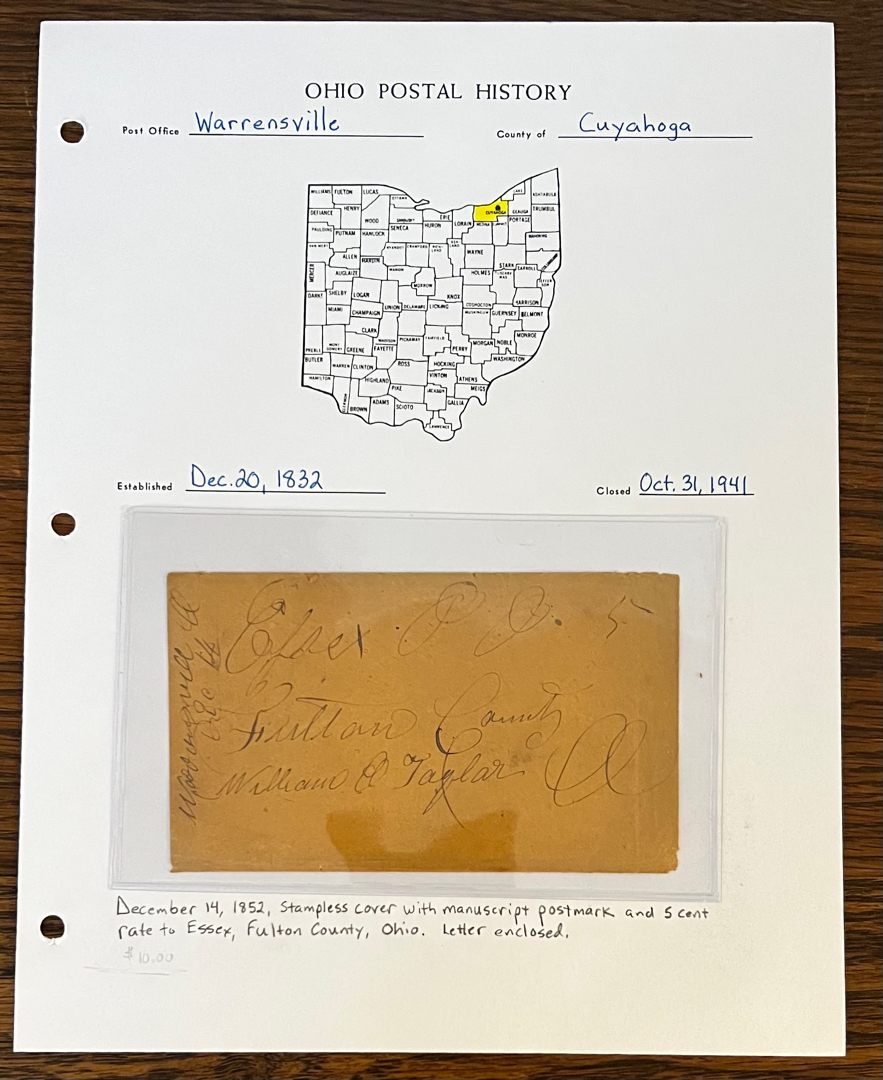 OHIO POSTAL HISTORY
Post Office Warrensville County of Cuyahoga
WILLIAMS FULTON LUCAS OTTAWA LAKE ASHTABULA
DEFIANCE HENRY WOOD SANDUSKY ERIE LORAIN CUYAHOGA GEAUGA TRUMBUL
PAULDING PUTNAM HANCOCK SENECA HURON MEDINA SUMMIT PORTAGE
VAN WERT ALLEN HARDIN WYANDOT CRAWFORD RICHLAND ASHLAND WAYNE STARK MAHONING
MERCER AUGLAIZE MARION MORROW HOLMES TUSCARAWAS CARROLL COLUMBIANA JEFFERSON
DARKE SHELBY LOGAN UNION DELAWARE KNOX LICKING COSHOCTON HARRISON
MIAMI CHAMPAIGN MUSKINGUM GUERNSEY BELMONT
CLARK MADISON PICKAWAY FAIRFIELD PERRY MORGAN NOBLE MONROE
PREBLE MONTGOMERY GREENE FAYETTE WASHINGTON
BUTLER WARREN CLINTON ROSS HOCKING VINTON ATHENS
HAMILTON HIGHLAND PIKE JACKSON MEIGS
CLERMONT BROWN ADAMS SCIOTO GALLIA
LAWRENCE
Established Dec. 20, 1832 Closed Oct. 31, 1941
Essex P O. 5
Fulton County
William O Taylor O
Warrensville O
Dec 14
December 14, 1852, Stampless cover with manuscript postmark and 5 cent
rate to Essex, Fulton County, Ohio. Letter enclosed.
$10.00